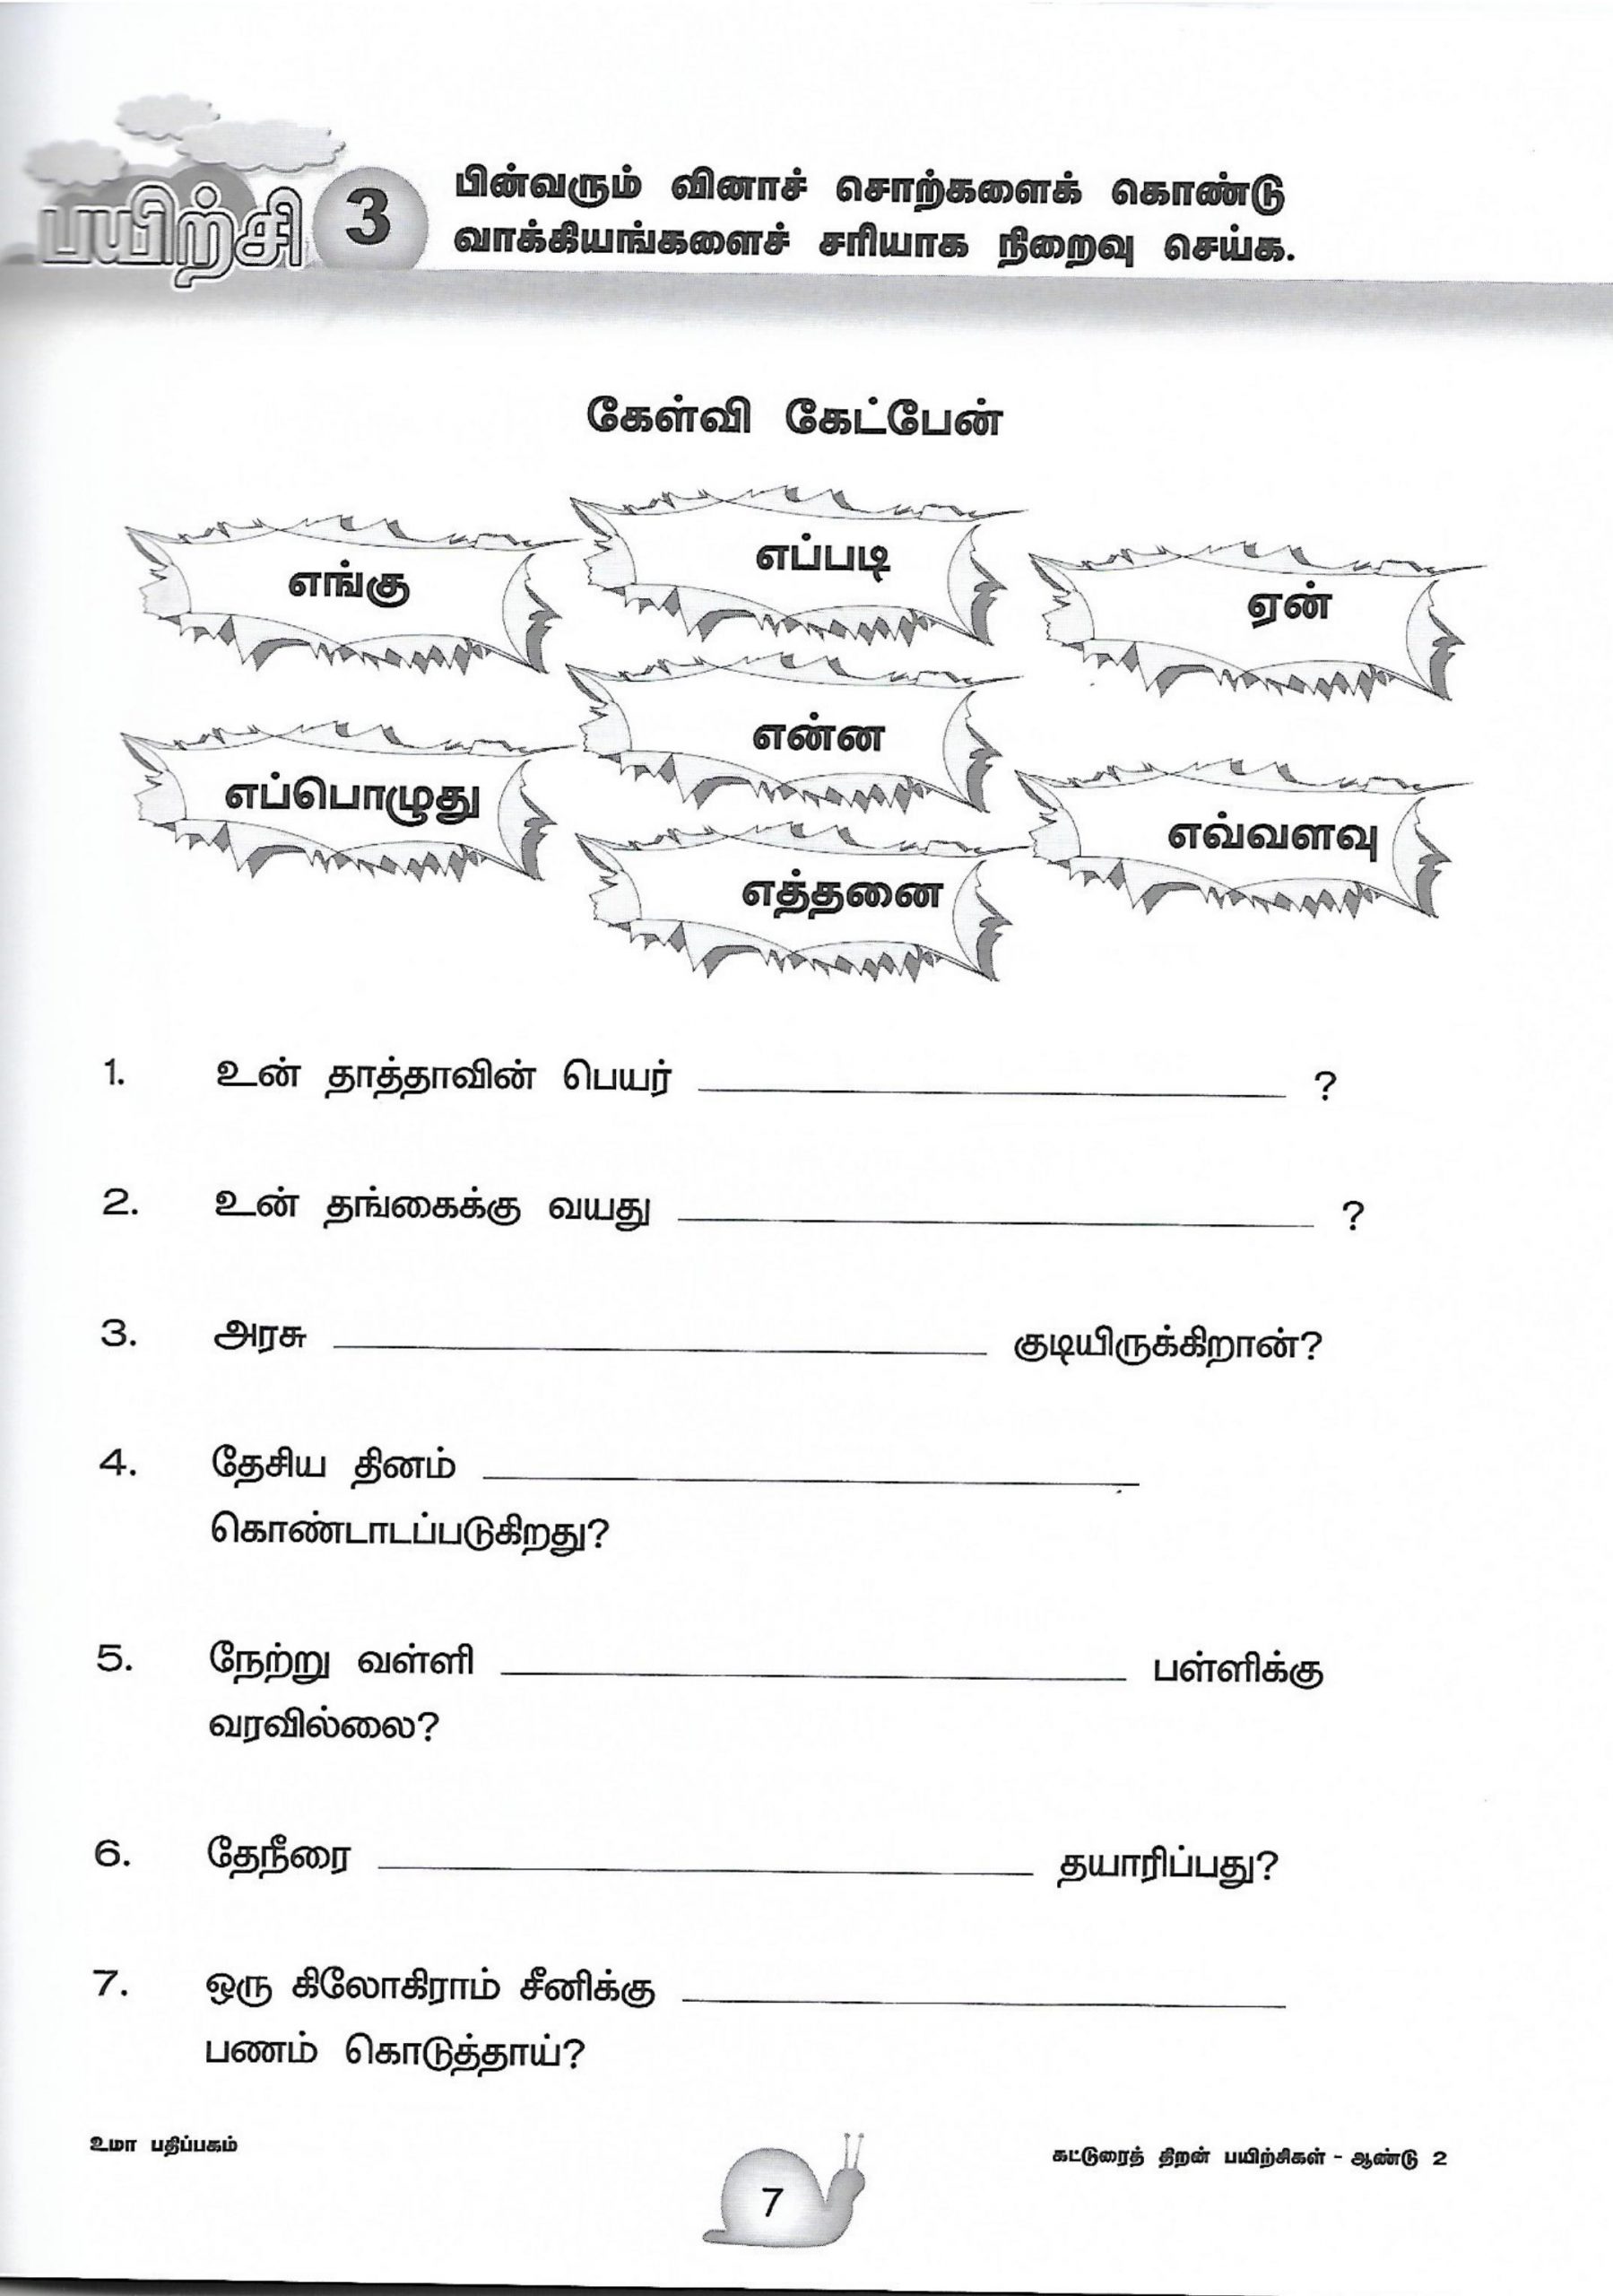 பயிற்சி 3
பின்வரும் வினாச் சொற்களைக் கொண்டு
வாக்கியங்களைச் சரியாக நிறைவு செய்க.
கேள்வி கேட்பேன்
எங்கு எப்படி ஏன்
என்ன
எப்பொழுது எவ்வளவு
எத்தனை
1. உன் தாத்தாவின் பெயர் ____________ ?
2. உன் தங்கைக்கு வயது ____________ ?
3. அரசு ____________ குடியிருக்கிறான்?
4. தேசிய தினம் ____________
கொண்டாடப்படுகிறது?
5. நேற்று வள்ளி ____________ பள்ளிக்கு
வரவில்லை?
6. தேநீரை ____________ தயாரிப்பது?
7. ஒரு கிலோகிராம் சீனிக்கு ____________
பணம் கொடுத்தாய்?
உமா பதிப்பகம்
கட்டுரைத் திறன் பயிற்சிகள் - ஆண்டு 2
7